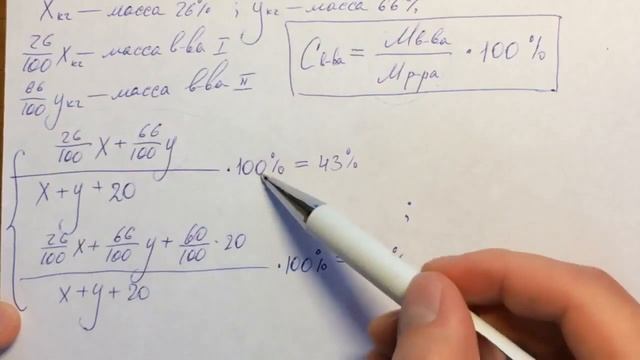 Xкг — масса 26% ; Yкг — масса 66%
26/100 Xкг — масса в-ва I
66/100 Yкг — масса в-ва II
Cв-ва = Mв-ва / Mр-ра · 100%
(26/100 X + 66/100 Y) / (X + Y + 20) · 100% = 43% ;
(26/100 X + 66/100 Y + 60/100 · 20) / (X + Y + 20) · 100% = %